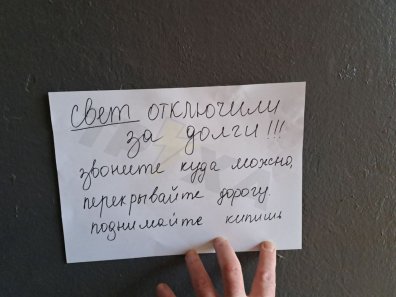 свет отключили
за долги!!!
звоните куда можно,
перекрывайте дорогу.
поднимайте кипишь